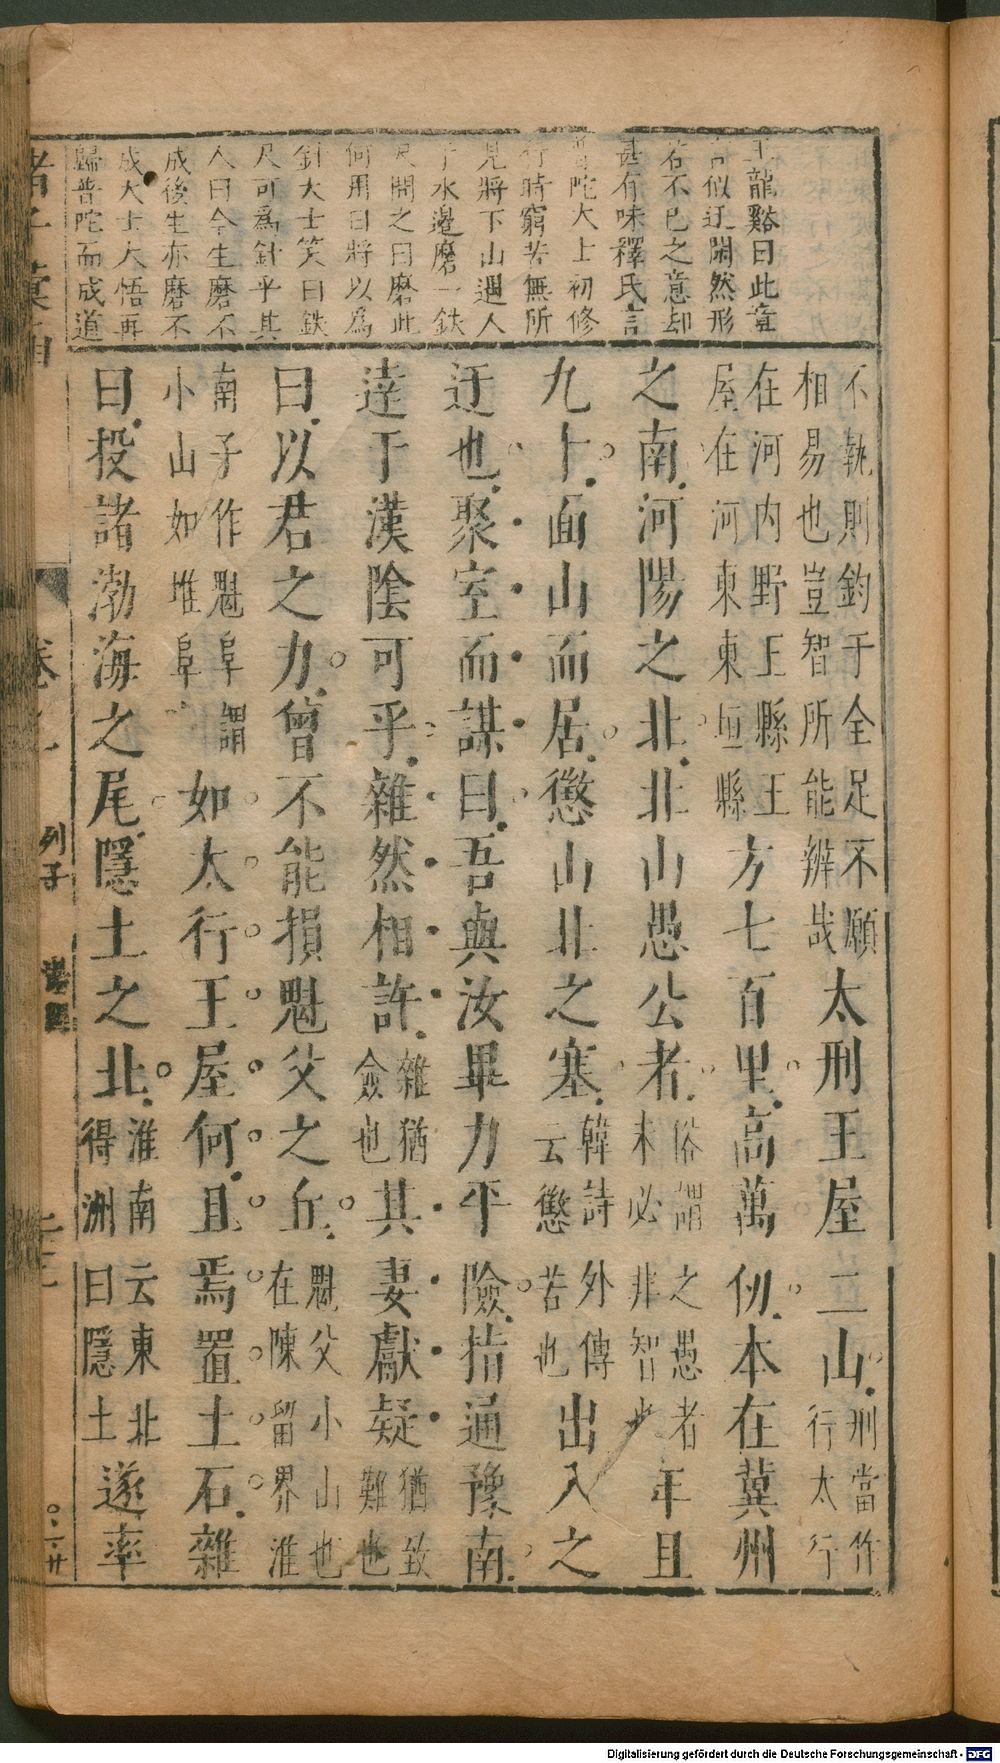 王龍谿曰此章
言似迂闊然形
若不已之意却
甚有味釋氏言
普陀大士初修
行時窮苦無所
見將下山遇人
于水邊磨一鉄
尺問之曰磨此
何用曰將以爲
針大士笑曰鉄
尺可爲針乎其
人曰今生磨不
成後生亦磨不
成大士大悟再
歸普陀而成道
不執則鈞于全足不願
相易也豈智所能辨哉
太刑王屋二山
刑當作
行太行
在河内野王縣王
屋在河東東垣縣
方七百里高萬仞本在冀州
之南河陽之北北山愚公者
俗謂之愚者
未必非智也
年且
九十面山而居懲山北之塞
韓詩外傳
云懲苦也
出入之
迂也聚室而謀曰吾與汝畢力平險指通豫南
達于漢陰可乎雜然相許
雜猶
僉也
其妻獻疑
猶致
難也
曰以君之力曾不能損魁父之丘
魁父小山也
在陳留界淮
南子作魁阜謂
小山如堆阜
如太行王屋何且焉置土石雜
曰投諸渤海之尾隱土之北
淮南云東北
得洲曰隱土
遂率
列子
湯問